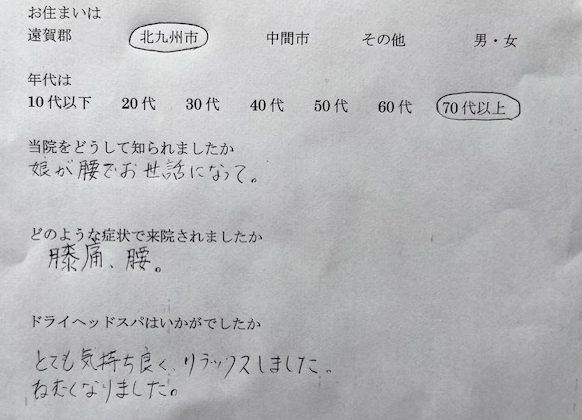 お住まいは
遠賀郡 北九州市 中間市 その他 男・女
年代は
10代以下 20代 30代 40代 50代 60代 70代以上
当院をどうして知られましたか
娘が腰でお世話になって。
どのような症状で来院されましたか
膝痛、腰。
ドライヘッドスパはいかがでしたか
とても気持ち良く、リラックスしました。
ねむたくなりました。